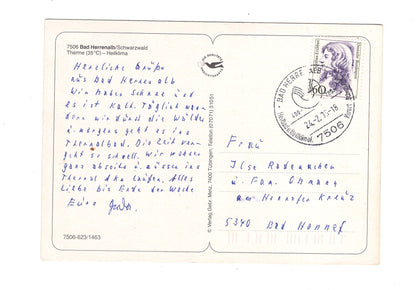 7506 Bad Herrenalb/Schwarzwald
Therme (35°C) – Heilklima
Herzliche Grüße
aus Bad Herrenalb
Wir haben Schnee und
es ist kalt. Täglich wan-
dern wir durch die Wälder
u. morgens geht es ins
Thermalbad. Die Zeit ver-
geht so schnell. Wir wohnen
ganz abseits u. müssen ins
Thermalbad laufen. Alles
Liebe bis Ende der Woche
Eure
7506-623/1463
© Verlag Gebr. Metz, 7400 Tübingen, Telefon (07071)
60
BAD HERRENALB
24.-2.
7506
Frau
Ilse
u. Fam.
5340 Bad Honnef